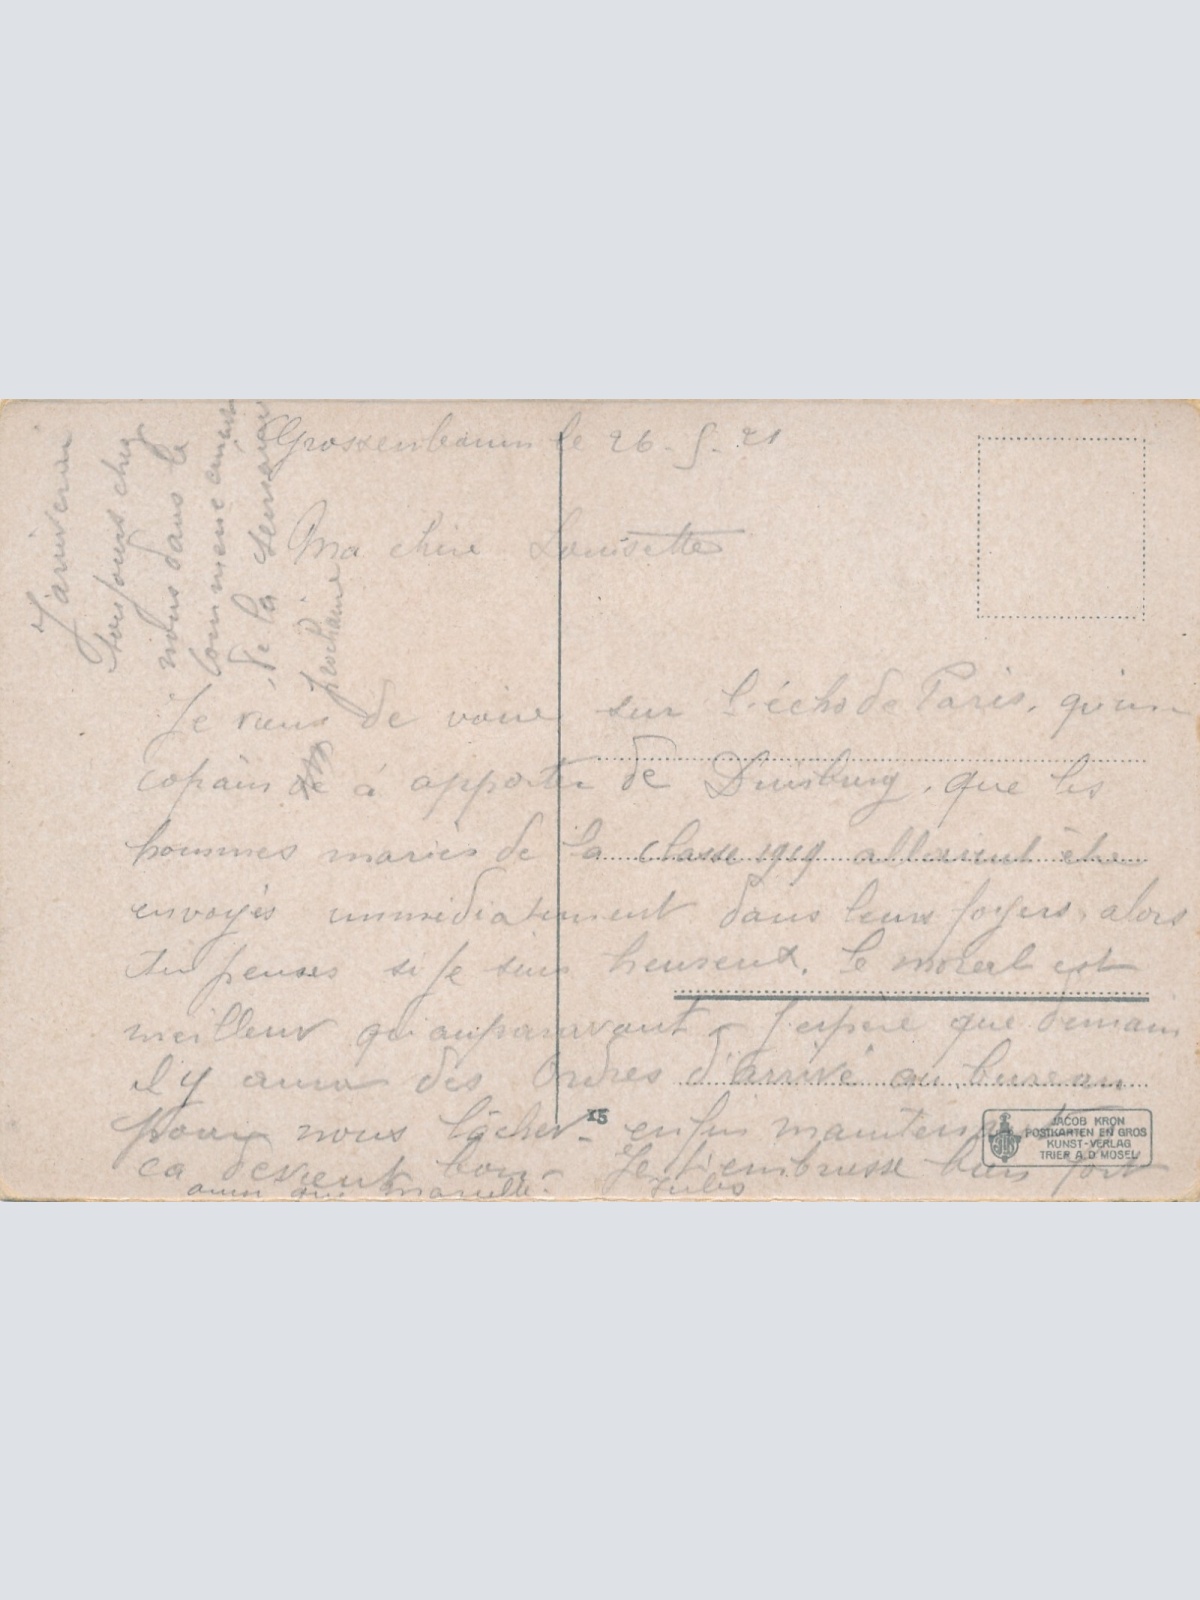 Grossenbaum le 26-5-21
Ma chère Louisette
Je viens de voire sur l'écho de Paris, qu'un
copain à apporter de Duisburg, que les
hommes mariés de la classe 1919 allaient être
envoyés immédiatement dans leurs foyers, alors
tu penses si je suis heureux. Le moral est
meilleur qu'auparavant - J'espère que demain
il y aura des Ordres d'arrivé au bureau
pour nous lâcher - enfin maintenant
ça devient bon - Je t'embrasse bien fort
ainsi que Marcelle. Jules
J'arriverai
toujours chez
nous dans le
commencement
de la semaine
prochaine
15
JACOB KRON
POSTKARTEN EN GROS
KUNST-VERLAG
TRIER A.D MOSEL